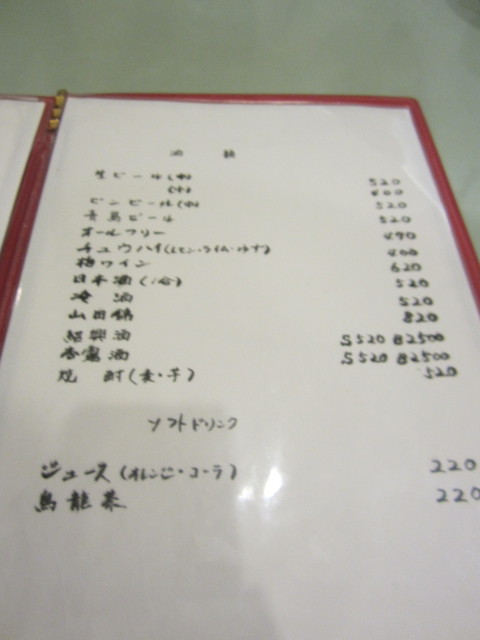 酒類
生ビール(中) 520
(小) 400
ビンビール(中) 520
青島ビール 520
オールフリー 490
チュウハイ(レモン・ライム・ゆず) 400
梅ワイン 620
日本酒(1合) 520
冷酒 520
山田錦 820
紹興酒 S520 B2500
杏露酒 S520 B2500
焼酎(麦・芋) 520
ソフトドリンク
ジュース(オレンジ・コーラ) 220
烏龍茶 220